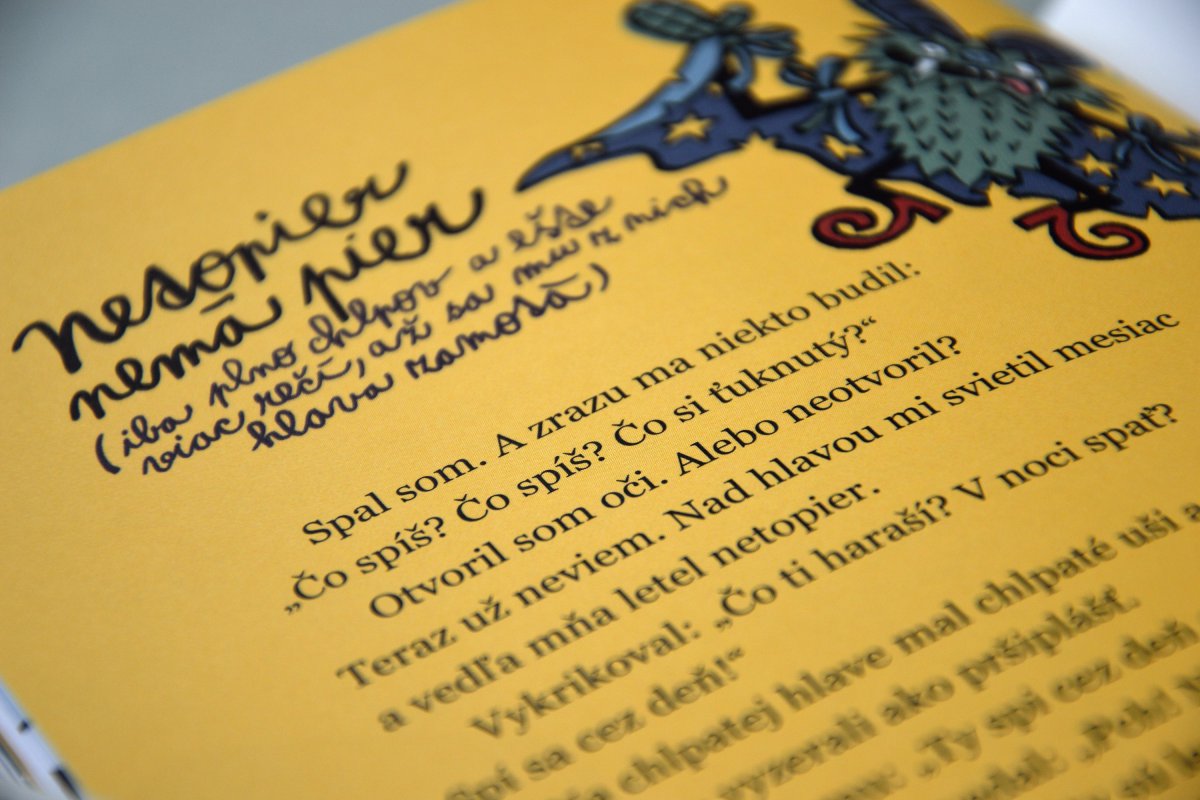 nesopier
nemá pier
(iba plno chlpov a ešše
viac rečí, až sa mu z nich
hlava zamosá)
Spal som. A zrazu ma niekto budil:
„Čo spíš? Čo spíš? Čo si ťuknutý?“
Otvoril som oči. Alebo neotvoril?
Teraz už neviem. Nad hlavou mi svietil mesiac
a vedľa mňa letel netopier.
Vykrikoval: „Čo ti haraší? V noci spať?
Spí sa cez deň!“
chlpatej hlave mal chlpaté uši a
vyzerali ako pršiplášť.
„Ty spi cez deň